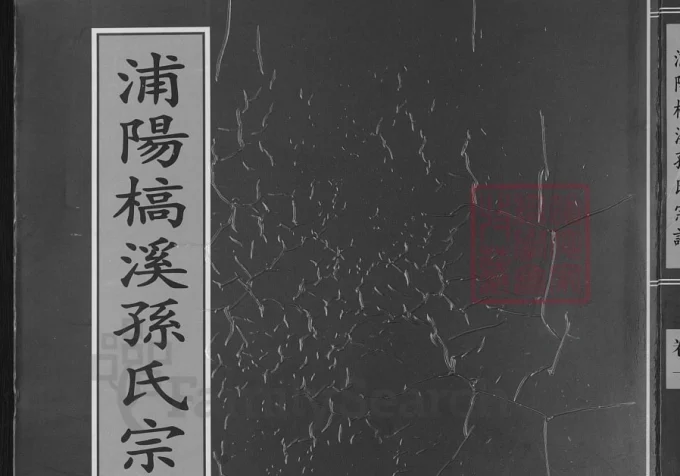 浦陽槁溪孫氏宗
浦陽槁溪孫氏宗譜
卷
FamilySearch